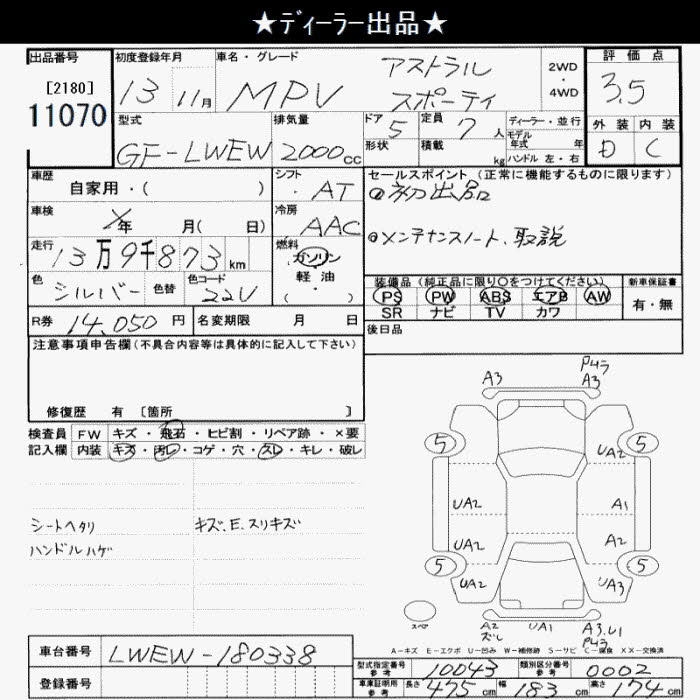 ★ディーラー出品★
出品番号
[2180]
11070
初度登録年月
13 11月
車名・グレード
MPV
アストラル
スポーティ
2WD
・
4WD
評価点
3.5
外装 内装
D C
型式
GF-LWEW
排気量
2000cc
ドア 5
形状
定員 7人
積載 kg
ディーラー・並行
モデル年式 年
ハンドル 左・右
車歴
自家用・( )
シフト
・AT
セールスポイント (正常に機能するものに限ります)
初出品
メンテナンスノート、取説
車検
年 月( 日)
冷房
AAC
走行
13万9千873km
燃料
ガソリン
軽・油
・( )
色
シルバー
色替
色コード
22V
装備品 (純正品に限り○をつけてください)
PS PW ABS エアB AW
SR ナビ TV カワ
新車保証書
有・無
R券 14,050円
名変期限 月 日
後日品
注意事項申告欄(不具合内容等は具体的に記入して下さい)
修復歴 有 [箇所 ]
検査員
記入欄
FW キズ・飛石・ヒビ割・リペア跡・×要
内装 キズ・汚レ・コゲ・穴・スレ・キレ・破レ
シートヘタリ
ハンドルハゲ
キズ、E、スリキズ
A3
P4ラ
A3
5 5
UA2
UA2 A1
UA2 A2
5 5
UA2 UA3
スペ
A2
ズレ
UA1
A3、U1
P43
A-キズ E-エクボ U-凹み W-補修跡 S-サビ C-腐食 XX-交換済
車台番号 LWEW-180338
登録番号
型式指定番号
参考
10043
類別区分番号
参考
0002
車庫証明用
参考
長さ 475cm 幅 183cm 高さ 174cm